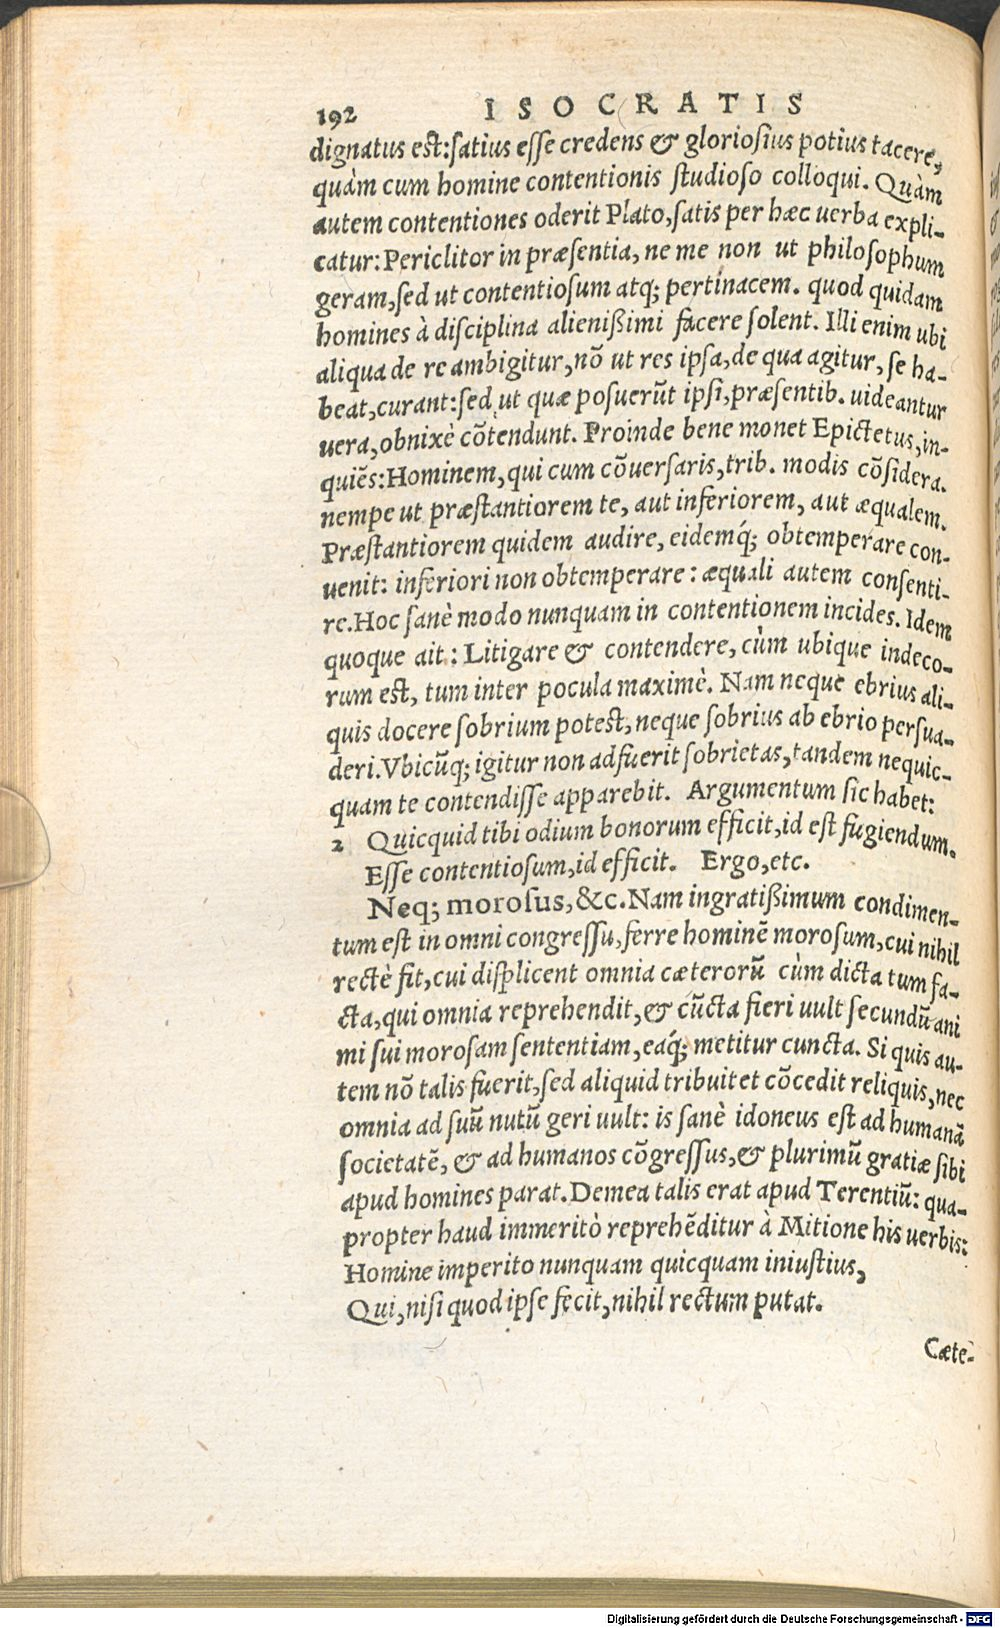 192 ISOCRATIS
dignatus est:satius esse credens & gloriosius potius tacere,
quàm cum homine contentionis studioso colloqui. Quàm
autem contentiones oderit Plato,satis per hæc uerba expli-
catur:Periclitor in præsentia, ne me non ut philosophum
geram,sed ut contentiosum atq; pertinacem. quod quidam
homines à disciplina alienißimi facere solent. Illi enim ubi
aliqua de re ambigitur,nō ut res ipsa,de qua agitur, se ha-
beat,curant:sed ut quæ posuerūt ipsi,præsentib. uideantur
uera,obnixè cōtendunt. Proinde bene monet Epictetus,in-
quiēs:Hominem,qui cum cōuersaris,trib. modis cōsidera.
nempe ut præstantiorem te, aut inferiorem, aut æqualem.
Præstantiorem quidem audire, eidemq́; obtemperare con-
uenit: inferiori non obtemperare: æquali autem consenti-
re.Hoc sanè modo nunquam in contentionem incides. Idem
quoque ait: Litigare & contendere, cùm ubique indeco-
rum est, tum inter pocula maximè. Nam neque ebrius ali-
quis docere sobrium potest,neque sobrius ab ebrio persua-
deri.Vbicūq; igitur non adfuerit sobrietas,tandem nequic-
quam te contendisse apparebit. Argumentum sic habet:
2 Quicquid tibi odium bonorum efficit,id est fugiendum.
Esse contentiosum,id efficit. Ergo,etc.
Neq; morosus, &c.Nam ingratißimum condimen-
tum est in omni congressu,ferre hominē morosum,cui nihil
rectè fit,cui displicent omnia cæterorū cùm dicta tum fa-
cta,qui omnia reprehendit,& cūcta fieri uult secundū ani
mi sui morosam sententiam,eaq́; metitur cuncta. Si quis au-
tem nō talis fuerit,sed aliquid tribuit et cōcedit reliquis,nec
omnia ad suū nutū geri uult: is sanè idoneus est ad humanā
societatē, & ad humanos cōgressus,& plurimū gratiæ sibi
apud homines parat.Demea talis erat apud Terentiū: qua-
propter haud immeritò reprehēditur à Mitione his uerbis:
Homine imperito nunquam quicquam iniustius,
Qui,nisi quod ipse fecit,nihil rectum putat.
Cæte-
Digitalisierung gefördert durch die Deutsche Forschungsgemeinschaft - DFG